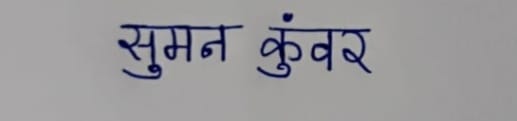 सुमन कुंवर